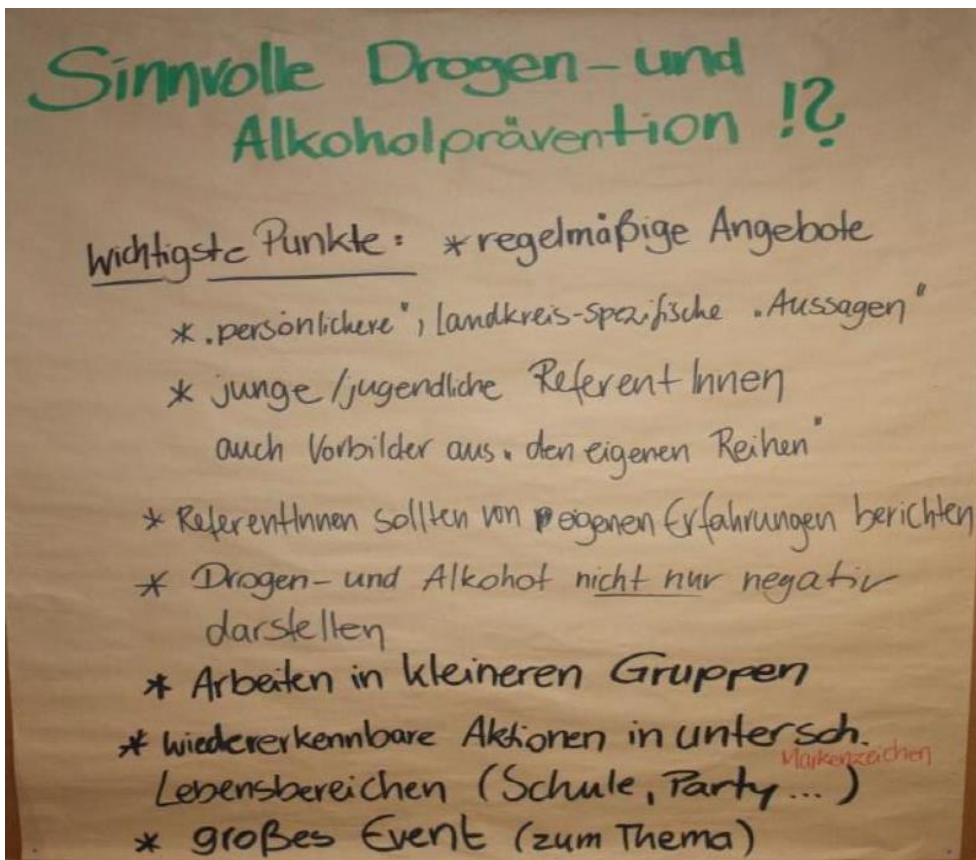 Sinnvolle Drogen- und
Alkoholprävention !?
Wichtigste Punkte: * regelmäßige Angebote
* "persönlichere", Landkreis-spezifische "Aussagen"
* junge/jugendliche ReferentInnen
auch Vorbilder aus "den eigenen Reihen"
* ReferentInnen sollten von eigenen Erfahrungen berichten
* Drogen- und Alkohol nicht nur negativ
darstellen
* Arbeiten in kleineren Gruppen
* wiedererkennbare Aktionen in untersch.
Markenzeichen
Lebensbereichen (Schule, Party...)
* großes Event (zum Thema)